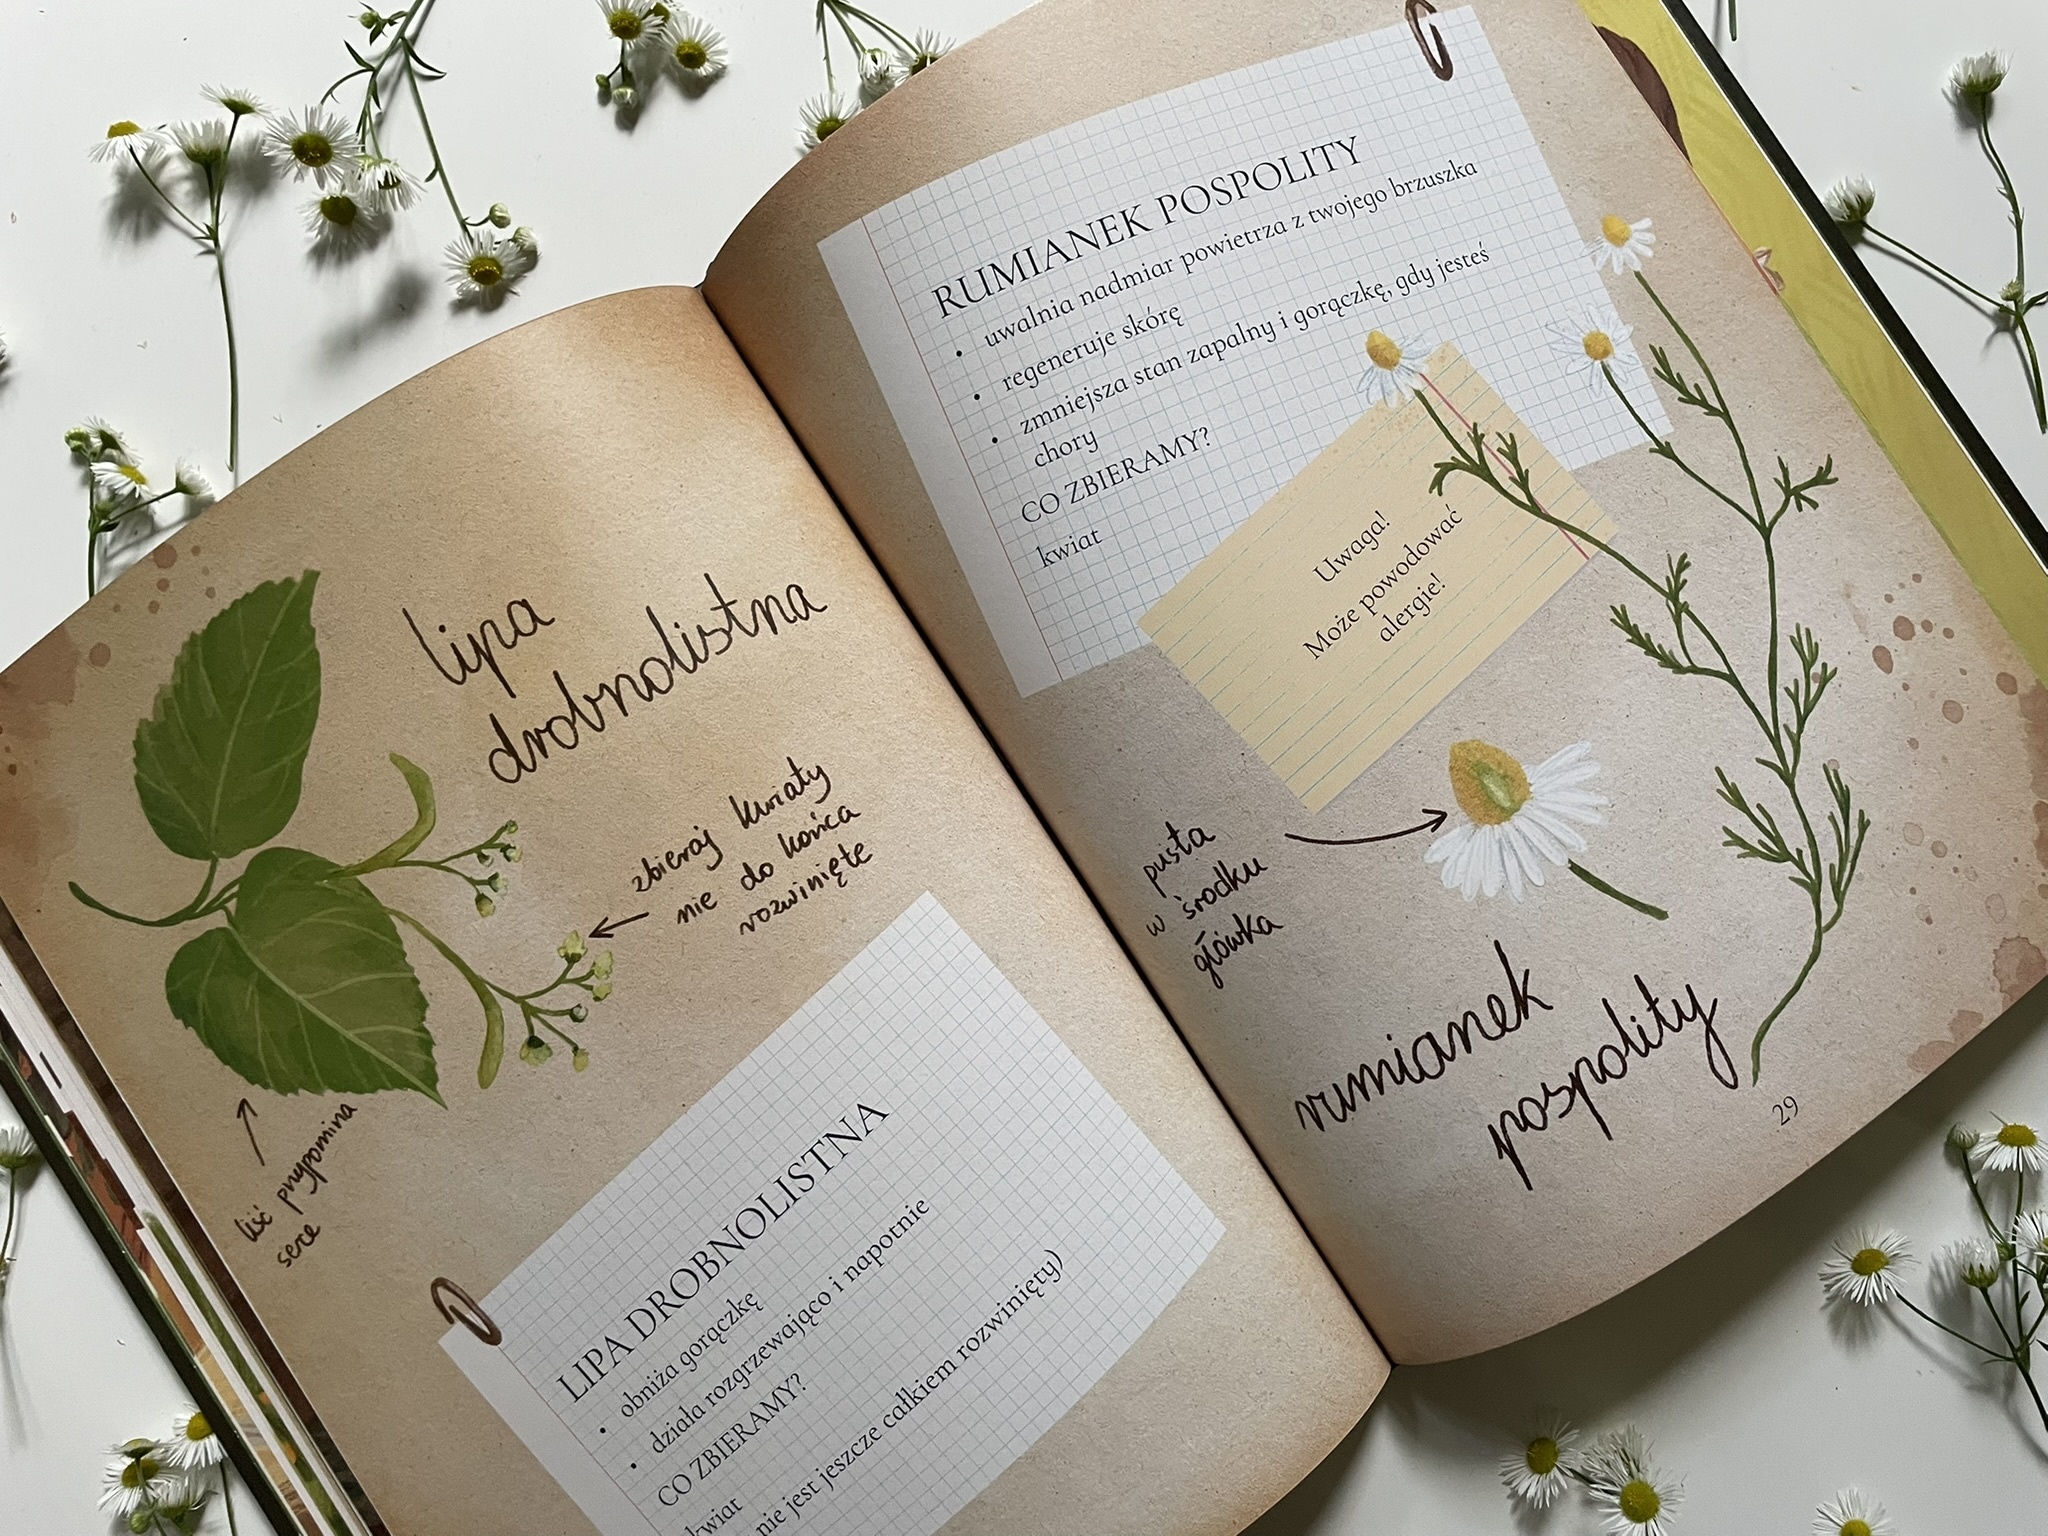 lipa
drobnolistna
zbieraj kwiaty
nie do końca
rozwinięte
liść przypomina
serce
LIPA DROBNOLISTNA
• obniża gorączkę
• działa rozgrzewająco i napotnie
CO ZBIERAMY?
kwiat
nie jest jeszcze całkiem rozwinięty)
RUMIANEK POSPOLITY
• uwalnia nadmiar powietrza z twojego brzuszka
• regeneruje skórę
• zmniejsza stan zapalny i gorączkę, gdy jesteś
chory
CO ZBIERAMY?
kwiat
Uwaga!
Może powodować
alergie!
pusta
w środku
główka
rumianek
pospolity
29